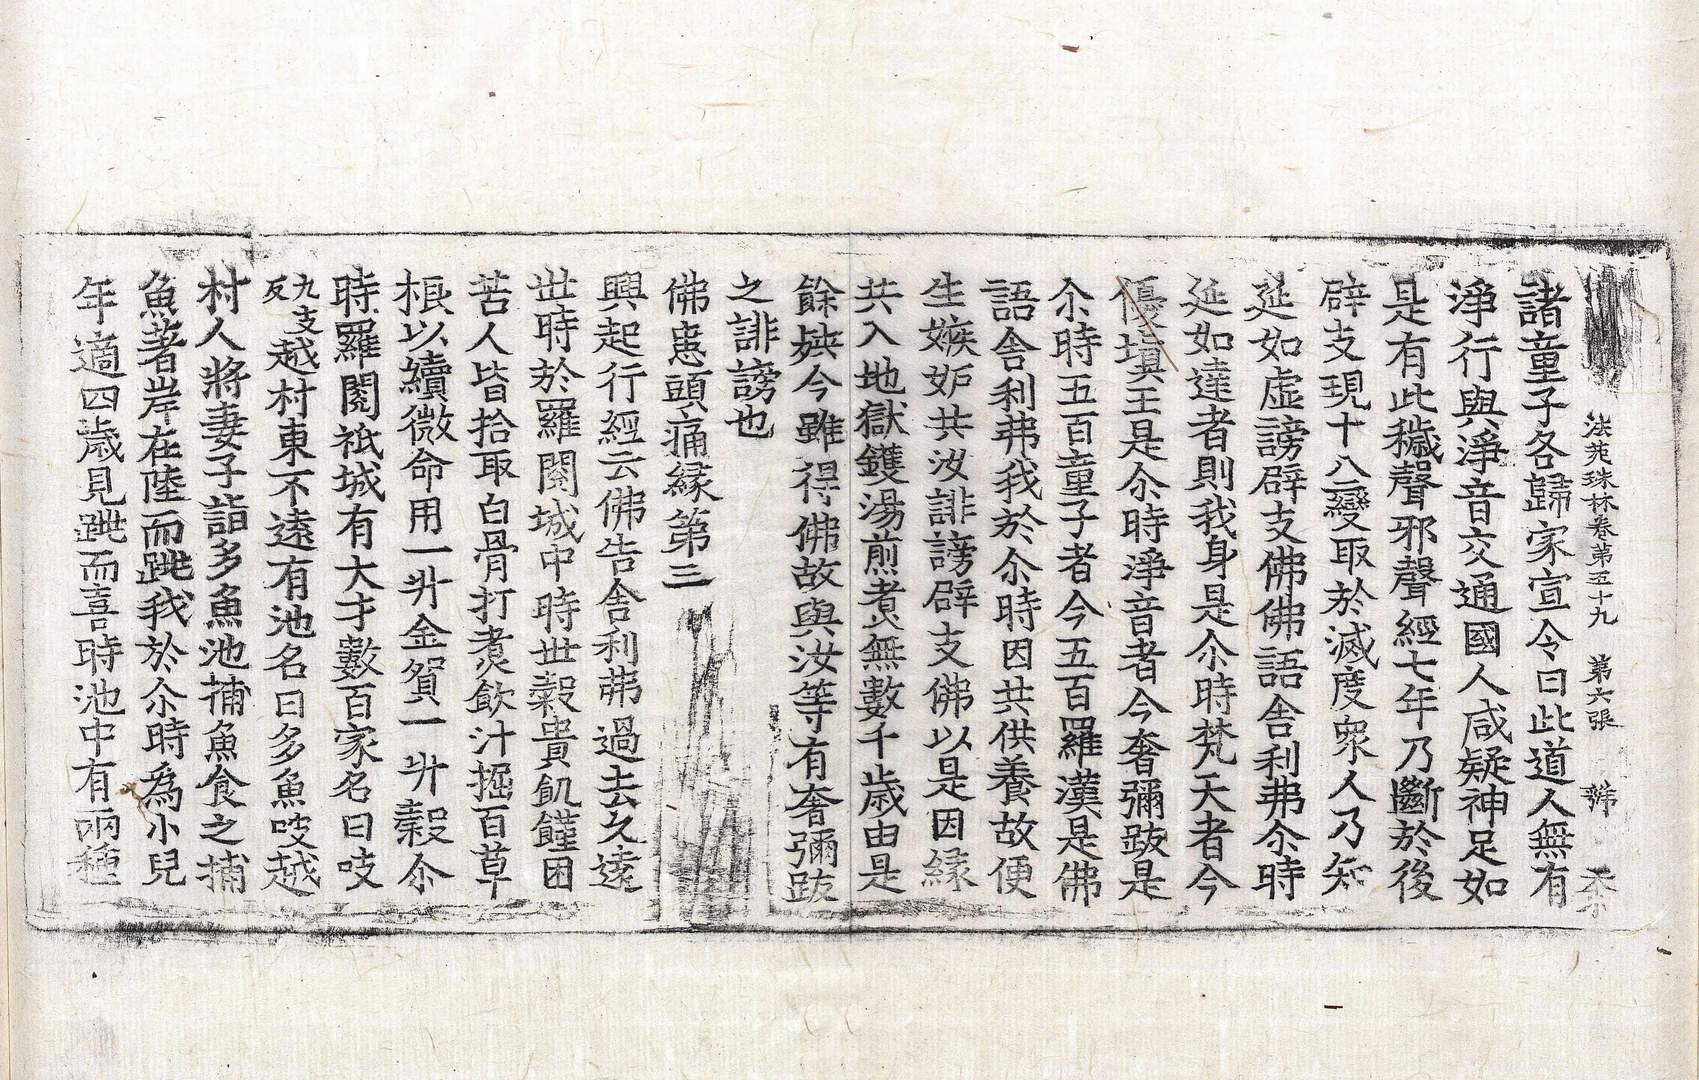 法苑珠林卷第五十九 第六張
諸童子各歸家宣令曰此道人無有
淨行與淨音交通國人咸疑神足如
是有此穢聲邪聲經七年乃斷於後
辟支現十八變取於滅度衆人乃知
延如虛謗辟支佛佛語舍利弗尒時
延如達者則我身是尒時梵天者今
優填王是尒時淨音者今奢彌跋是
尒時五百童子者今五百羅漢是佛
語舍利弗我於尒時因共供養故便
生嫉妒共汝誹謗辟支佛以是因緣
共入地獄鑊湯煎煮無數千歲由是
餘殃今雖得佛故與汝等有奢彌跋
之誹謗也
佛患頭痛緣第三
興起行經云佛告舍利弗過去久遠
世時於羅閱城中時世穀貴飢饉困
苦人皆拾取白骨打煮飲汁掘百草
根以續微命用一升金貿一升穀尒
時羅閱祇城有大才數百家名曰吱
九支反越村東不遠有池名曰多魚吱越
村人將妻子詣多魚池捕魚食之捕
魚著岸在陸而跳我於尒時爲小兒
年適四歲見跳而喜時池中有兩種